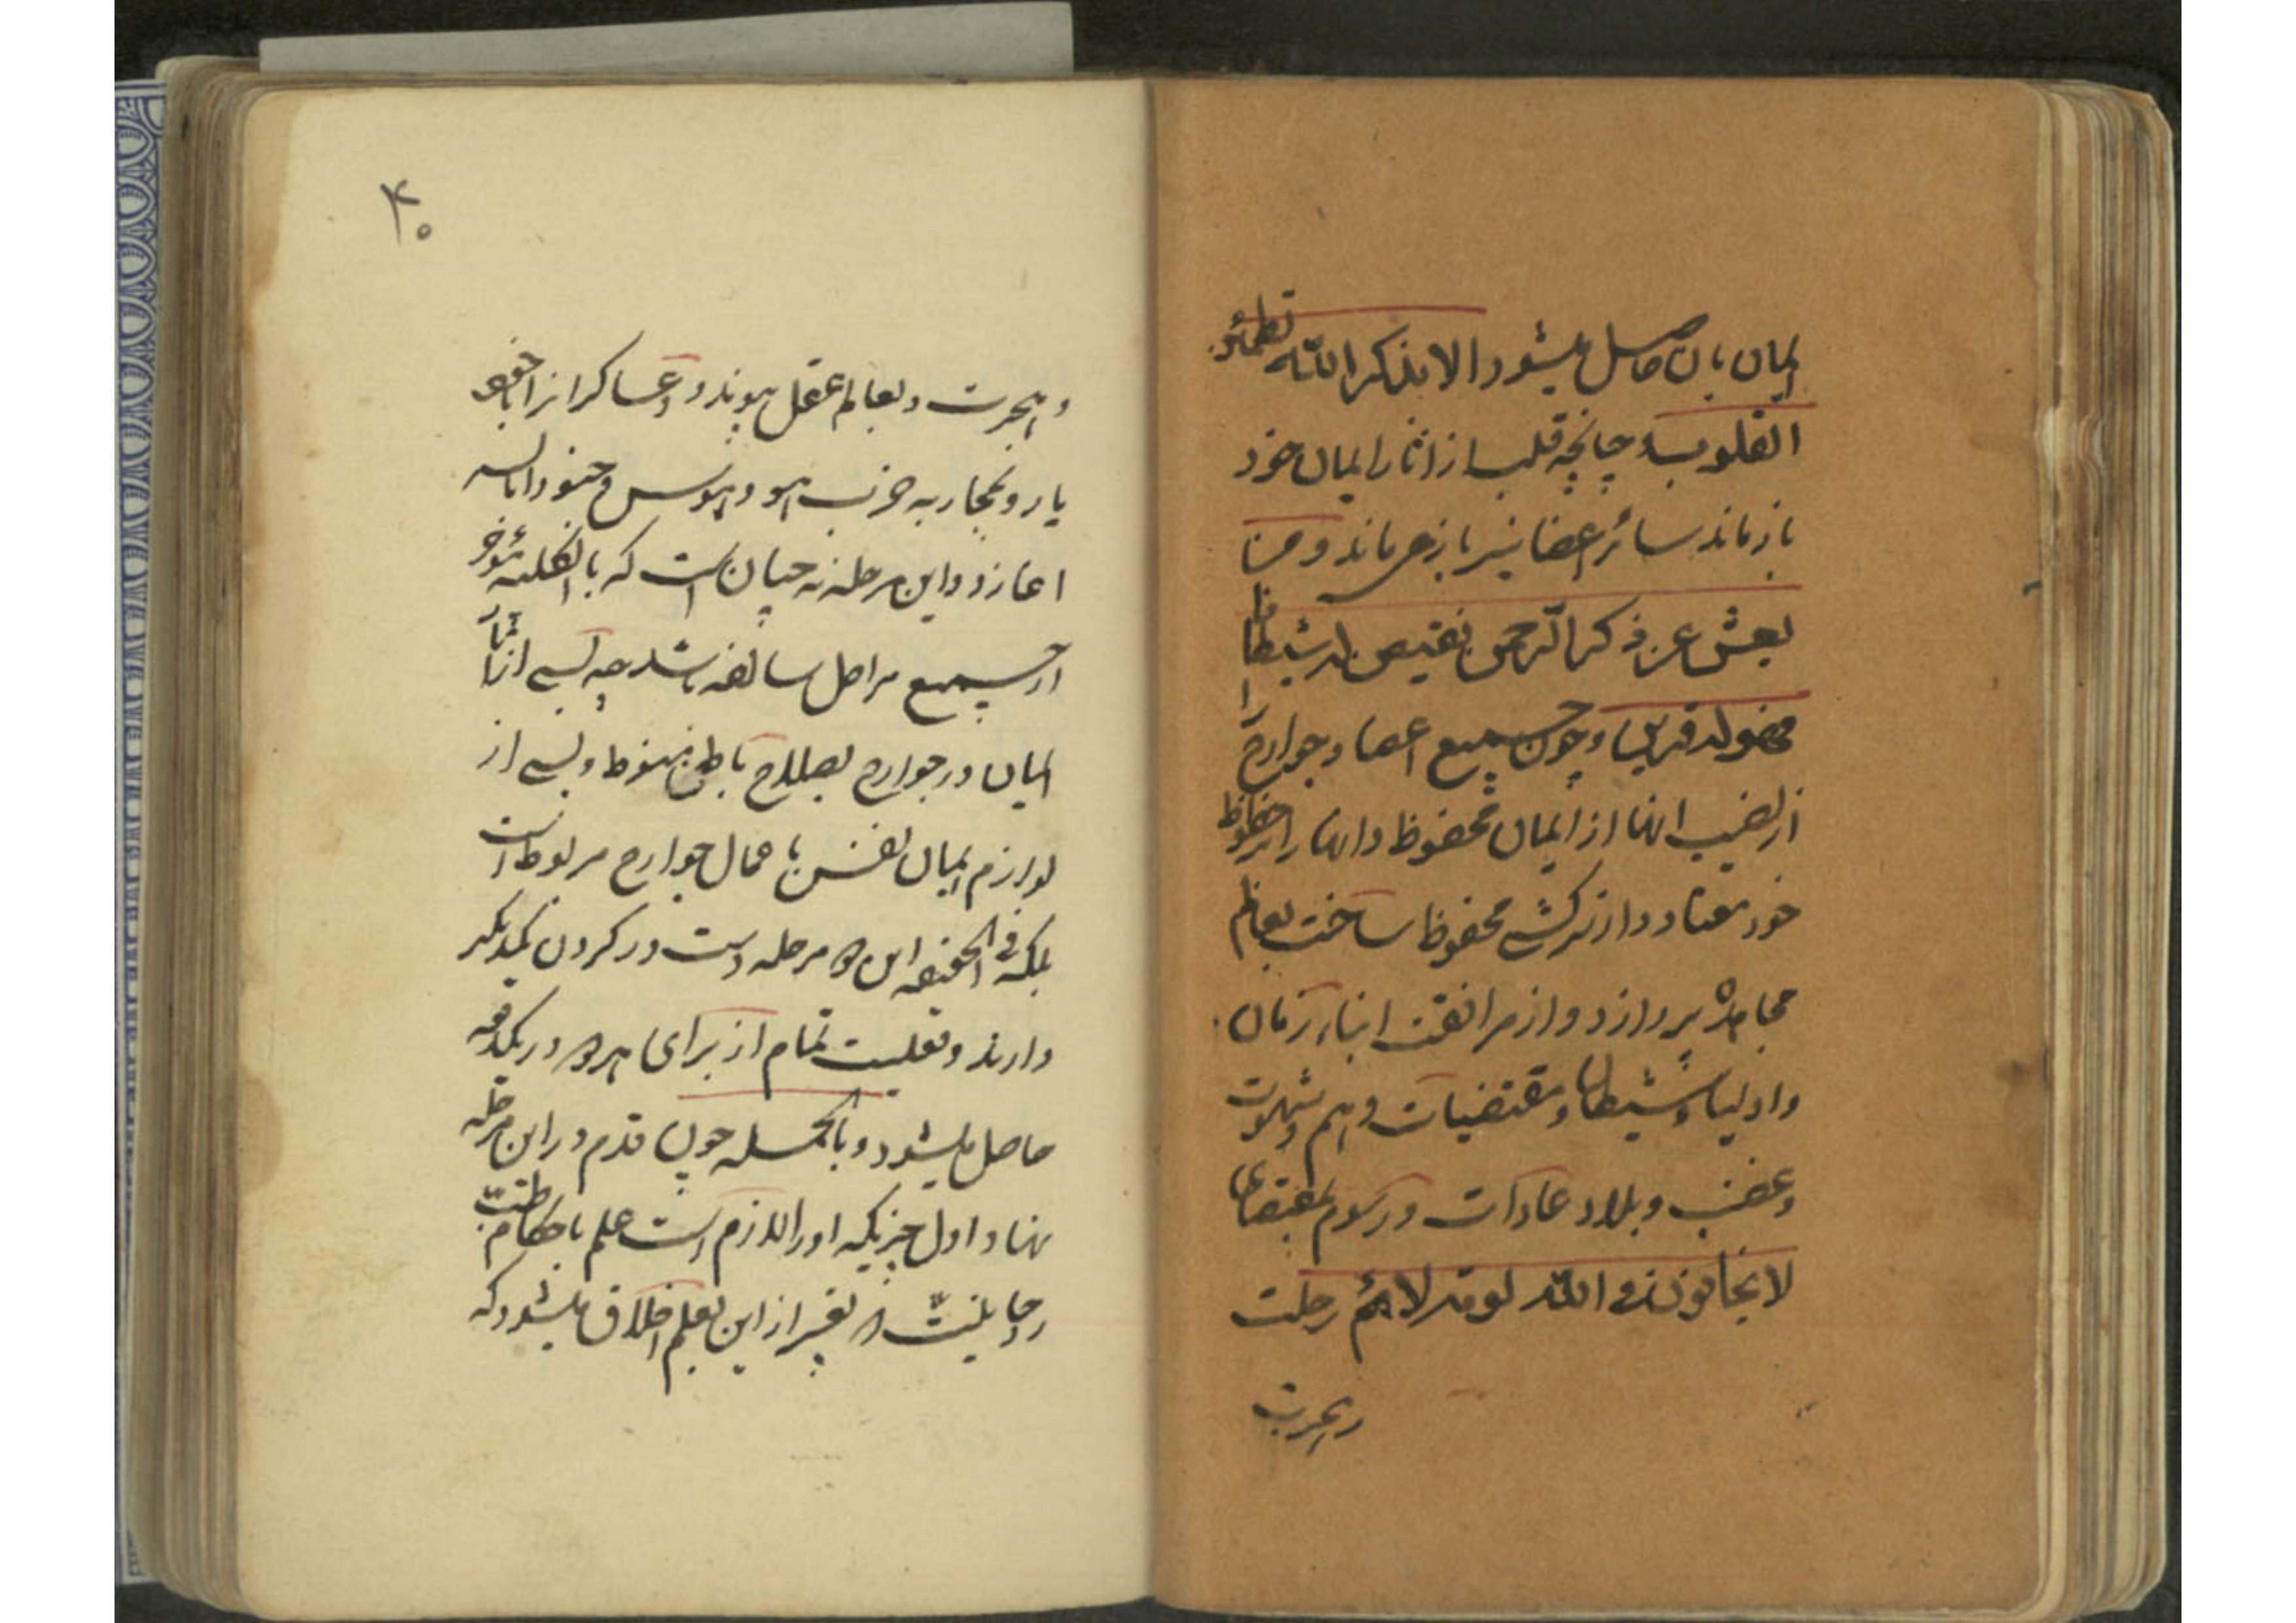 ایمان بان حاصل میشود الا بذکر الله تطمئن
القلوب و چنانچه قلب از اثار ایمان خود
باز ماند سائر اعضا نیز باز می ماند و من
یعش عن ذکر الرحمن نقیض له شیطانا
فهو له قرین و چون جمیع اعضا و جوارح
از نصیب انها از ایمان محفوظ و انها را از حظوظ
خود معتاد و از سرکشی محفوظ ساخت بعالم
مجاهده پردازد و از مرافقت ابناء زمان
و اولیاء شیطان و مقتضیات وهم و شهوت
و غضب و بلاد عادات و رسوم بمقتضای
لا یخافون فی الله لومة لائم رحلت
و هجرت
۴۰
و هجرت و بعالم عقل پیوندد و عساکر انرا با خود
یار و بمحاربه حزب هوا و هوس و جنود ابالسه
اغازد و این مرحله نه چنان است که بالکلیه مؤخر
از جمیع مراحل سالفه باشد چه بسی از اثار
ایمان در جوارح بصلاح باطن منوط و بسی از
لوازم ایمان نفس باعمال جوارح مربوط است
بلکه فی الحقیقه این دو مرحله دست در گردن یکدیگر
دارند و فعلیت تمام از برای هر دو در یکدفعه
حاصل میشود و بالجمله چون قدم در این مرحله
نهاد اول چیزیکه او را لازم است علم باحکام طب
روحانیست و تعبیر از این بعلم اخلاق میشود که